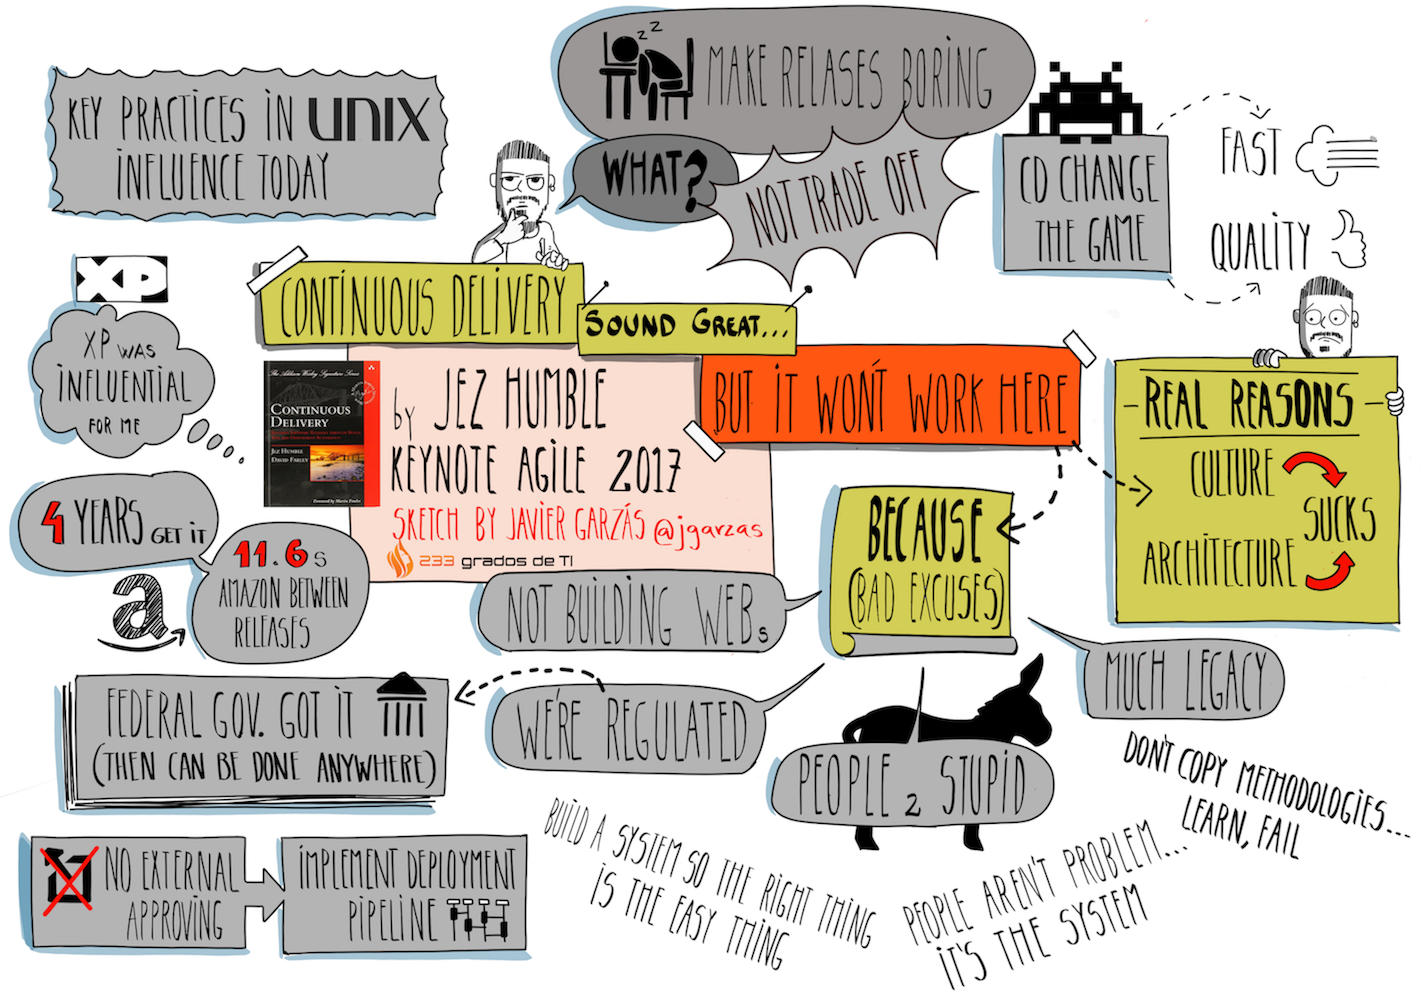 MAKE RELASES BORING
WHAT?
NOT TRADE OFF
KEY PRACTICES IN UNIX
INFLUENCE TODAY
CD CHANGE
THE GAME
FAST
QUALITY
XP
XP WAS
INFLUENTIAL
FOR ME
CONTINUOUS DELIVERY
SOUND GREAT...
BUT IT WON'T WORK HERE
The Addison Wesley Signature Series
CONTINUOUS
DELIVERY
JEZ HUMBLE
DAVID FARLEY
Foreword by Martin Fowler
by JEZ HUMBLE
KEYNOTE AGILE 2017
SKETCH BY JAVIER GARZÁS @jgarzas
233 grados de TI
-REAL REASONS-
CULTURE
SUCKS
ARCHITECTURE
BECAUSE
(BAD EXCUSES)
4 YEARS GET IT
11.6s
AMAZON BETWEEN
RELEASES
a
NOT BUILDING WEBs
WE'RE REGULATED
PEOPLE 2 STUPID
MUCH LEGACY
FEDERAL GOV. GOT IT
(THEN CAN BE DONE ANYWHERE)
NO EXTERNAL
APPROVING
IMPLEMENT DEPLOYMENT
PIPELINE
BUILD A SYSTEM SO THE RIGHT THING
IS THE EASY THING
PEOPLE AREN'T PROBLEM...
IT'S THE SYSTEM
DON'T COPY METHODOLOGIES...
LEARN, FAIL
z z